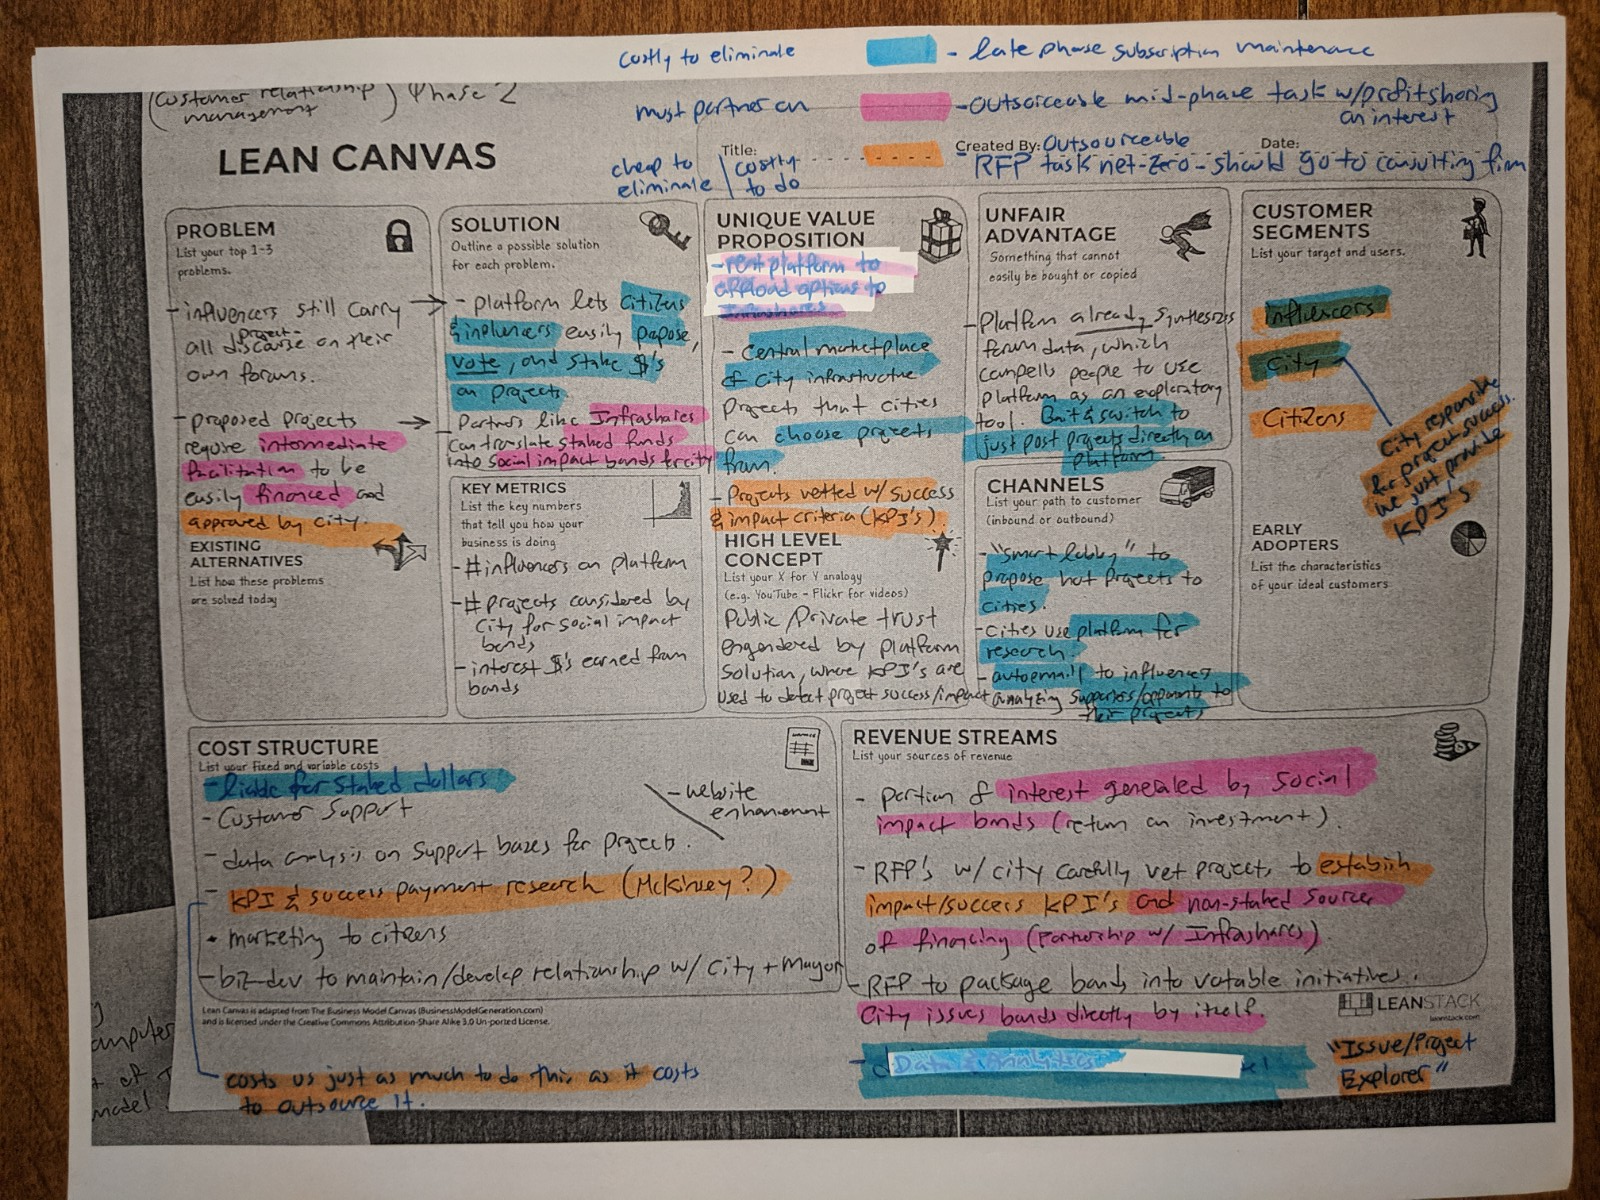 costly to eliminate
- late phase subscription maintenance
(customer relationship
management) Phase 2
must partner on
- outsourceable mid-phase task w/profit sharing
on interest
LEAN CANVAS
Title:
Created By: Outsourceable
Date:
cheap to
eliminate
costly
to do
- RFP task net-zero - should go to consulting firm
PROBLEM
List your top 1-3
problems.
- influencers still carry
all project discourse on their
own forums.
- proposed projects
require intermediate
facilitation to be
easily financed and
approved by city.
EXISTING
ALTERNATIVES
List how these problems
are solved today
SOLUTION
Outline a possible solution
for each problem.
- platform lets citizens
& influncers easily popose,
vote, and stake $'s
on projects
- Partners like Infrashares
can translate staked funds
into social impact bonds for city
KEY METRICS
List the key numbers
that tell you how your
business is doing
- # influencers on platform
- # projects considered by
City for social impact
bonds
- interest $'s earned from
bonds
UNIQUE VALUE
PROPOSITION
- rent platform to
offload options to
Infrashares
- Central marketplace
of City infrastructure
projects that cities
can choose projects
from.
- Projects vetted w/ success
& impact criteria (KPI's).
HIGH LEVEL
CONCEPT
List your X for Y analogy
(e.g. YouTube - Flickr for videos)
Public/Private trust
engendered by platform
solution, where KPI's are
used to detect project success/impact
UNFAIR
ADVANTAGE
Something that cannot
easily be bought or copied
- Platform already synthesizes
forum data, which
compells people to use
platform as an exploratory
tool. Bait & switch to
just post projects directly on
platform
CHANNELS
List your path to customer
(inbound or outbound)
- "smart lobby" to
propose hot projects to
cities.
- cities use platform for
research.
- autoemail to influencers
analyzing supporters/opponents to
their projects
CUSTOMER
SEGMENTS
List your target and users.
influencers
City
Citizens
City responsible
for project success.
we just provide
KPI's
EARLY
ADOPTERS
List the characteristics
of your ideal customers
COST STRUCTURE
List your fixed and variable costs
- liable for staked dollars
- Customer Support
- data analysis on support bases for projects.
- KPI & success payment research (McKinsey?)
• marketing to citizens
- biz-dev to maintain/develop relationship w/ City + Mayor
- website
enhancement
REVENUE STREAMS
List your sources of revenue
- portion of interest generated by social
impact bonds (return on investment).
- RFP's w/ city carefully vet projects, to establish
impact/success KPI's and non-staked source
of financing (Partnership w/ Infrashares)
- RFP to package bonds into votable initiatives.
City issues bonds directly by itself.
Lean Canvas is adapted from The Business Model Canvas (BusinessModelGeneration.com)
and is licensed under the Creative Commons Attribution-Share Alike 3.0 Un-ported License.
LEANSTACK
leanstack.com
Data & Analytics
"Issue/Project
Explorer"
costs us just as much to do this as it costs
to outsource it.
model